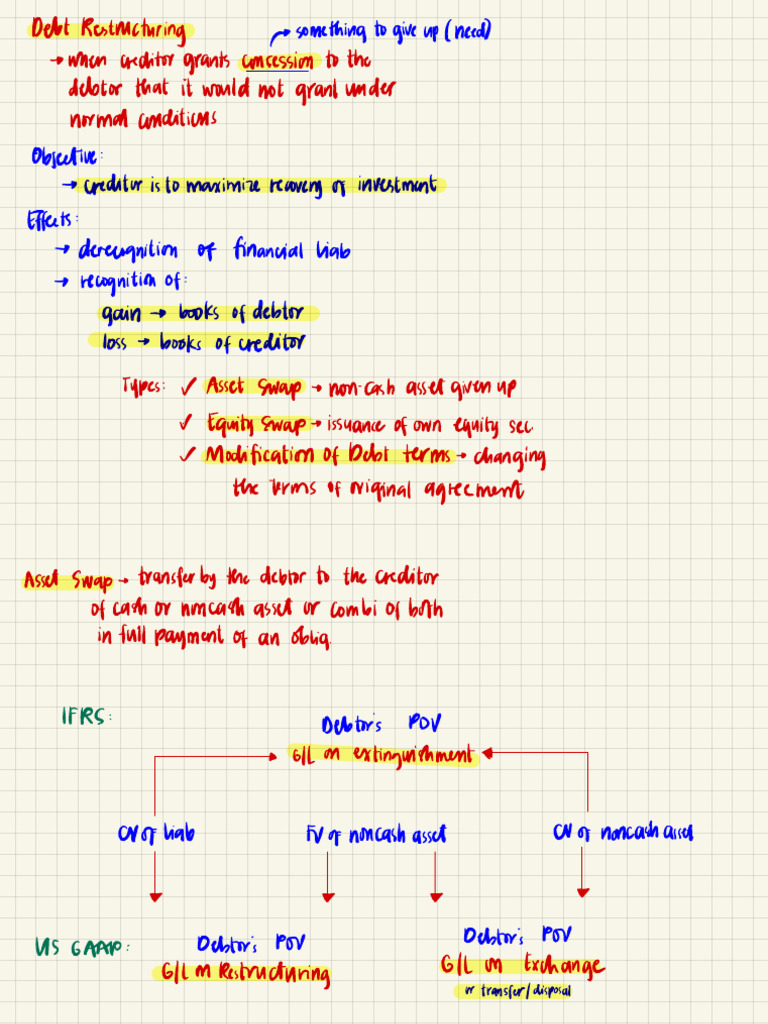 Debt Restructuring
→ something to give up (need)
→ when creditor grants concession to the
debtor that it would not grant under
normal conditions
Objective:
→ creditor is to maximize recovery of investment
Effects:
→ derecognition of financial liab
→ recognition of:
gain → books of debtor
loss → books of creditor
Types: ✓ Asset Swap → non-cash asset given up
✓ Equity Swap → issuance of own equity sec.
✓ Modification of Debt terms → changing
the terms of original agreement
Asset Swap → transfer by the debtor to the creditor
of cash or noncash asset or combi of both
in full payment of an obliq.
IFRS:
Debtor's POV
G/L on extinguishment
CV of liab
FV of noncash asset
CV of noncash asset
US GAAP:
Debtor's POV
G/L on Restructuring
Debtor's POV
G/L on Exchange
or transfer/disposal